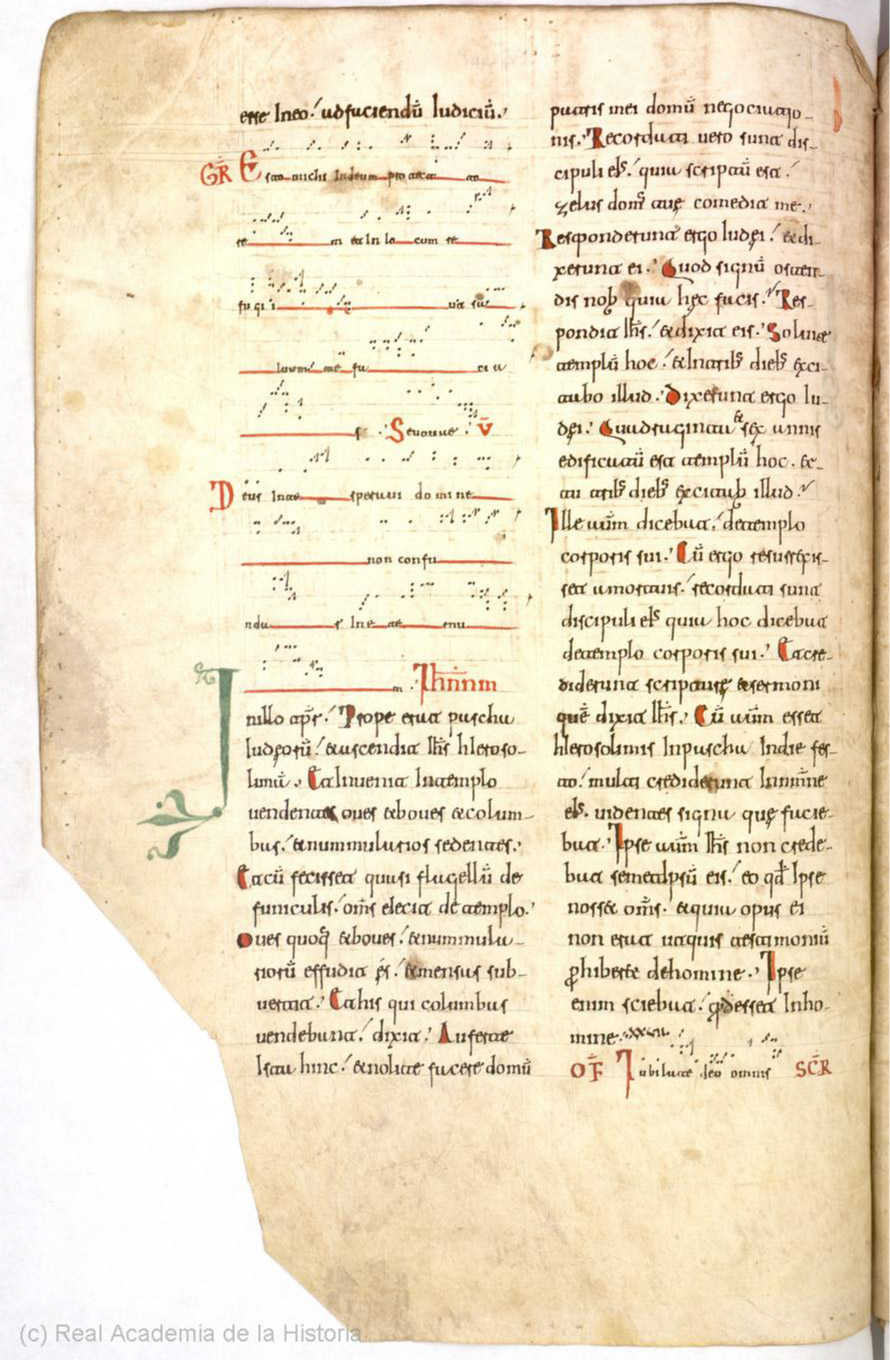 esse In eo. ad faciendū Iudiciū.
GR̄ Esto michi In deum pro tecto rē
re m et In lo cum re
fu gi i ut sal
luum me fa ci a
s. Seuouae. V̄
Deus In te speraui do mi ne
non confu
nda r In e te rnu
m. Iohannem
In illo tp̄r. Prope erat pascha
Iudeorū. et ascendit Ih̄s hIeroso-
limā. Et Inuenit In templo
uendentes oues et boues et colum-
bas. et nummularios sedentes.
Et cū fecisset quasi flagellū de
funiculis. om̄s eiecit de templo.
Oues quoq; et boues. et nummula-
riorū effudit ęs. et mensas sub-
uertit. Et his qui columbas
uendebant. dixit. Auferte
Ista hinc. et nolite facere domū
patris mei domū negociatio-
nis. Recordati uero sunt dis-
cipuli eI'. quia scriptū est.
Zelus dom' tuę comedit me.
Responderunt ergo Iudei. et di-
xerunt ei. Quod signū osten-
dis nob quia hęc facis. Res-
pondit Ih̄s. et dixit eis. Soluite
templū hoc. et In trib; dieb; exci-
tabo illud. Dixerunt ergo Iu-
dęi. Quadraginta et sex annis
edificatū est templū hoc. et
tu trib; dieb; excitab illud.
Ille aūm dicebat. de templo
corporis sui. Cū ergo resurrexis-
set a mortuis. recordati sunt
discipuli eI' quia hoc dicebat
de templo corporis sui. Et cre-
diderunt scripturę et sermoni
quē dixit Ih̄s. Cū aūm esset
hIerosolimis In pascha In die fes-
to. multi crediderunt In nm̄ne
eI'. uidentes signa quę facie-
bat. Ipse aūm Ih̄s non crede-
bat semetipsū eis. eo qd̄ Ipse
nosset om̄s. et quia opus ei
non erat ut quis testimoniū
p̄hiberet de homine. Ipse
enim sciebat. qd esset In ho-
mine.
OF̄ Iubilate deo omnis SC̄R
(c) Real Academia de la Historia